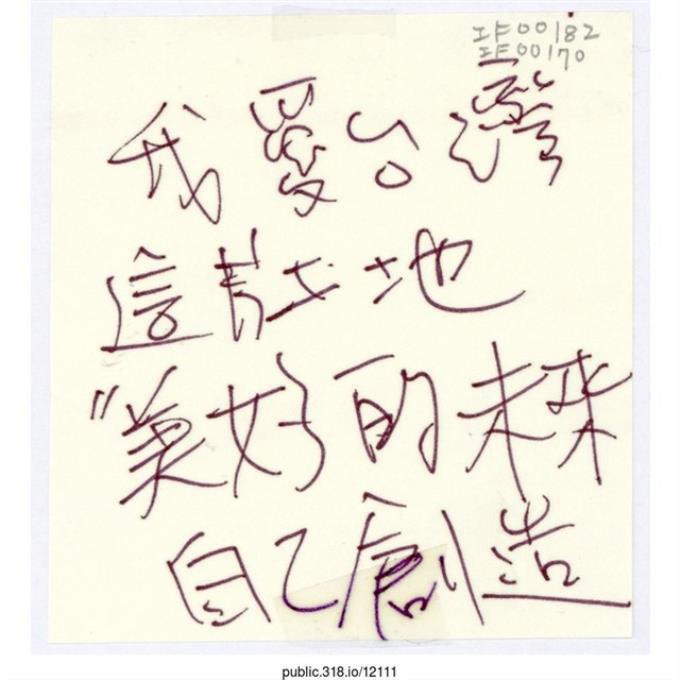 IF00182
IF00170
我愛台灣
這片土地
"美好的未來
自己創造
public.318.io/12111